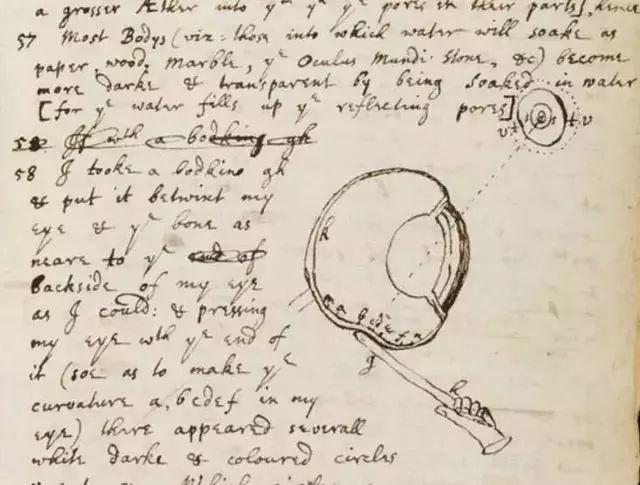 a grosser Æther into yᵉ yᵉ yᵉ pores in their parts], hence
57 Most Bodys (viz: those into which water will soake as
paper, wood, Marble, yᵉ Oculus Mundi Stone, &c) become
more darke & transparent by being soaked in water
[for yᵉ water fills up yᵉ reflecting pores]
58 If wth a bodking gh
58 I tooke a bodkine gh
& put it betwixt my
eye & yᵉ bone as
neare to yᵉ end of
backside of my eye
as I could: & pressing
my eye wth yᵉ end of
it (soe as to make yᵉ
curvature a, bcdef in my
eye) there appeared severall
white darke & coloured circles
s t v
k
g
h